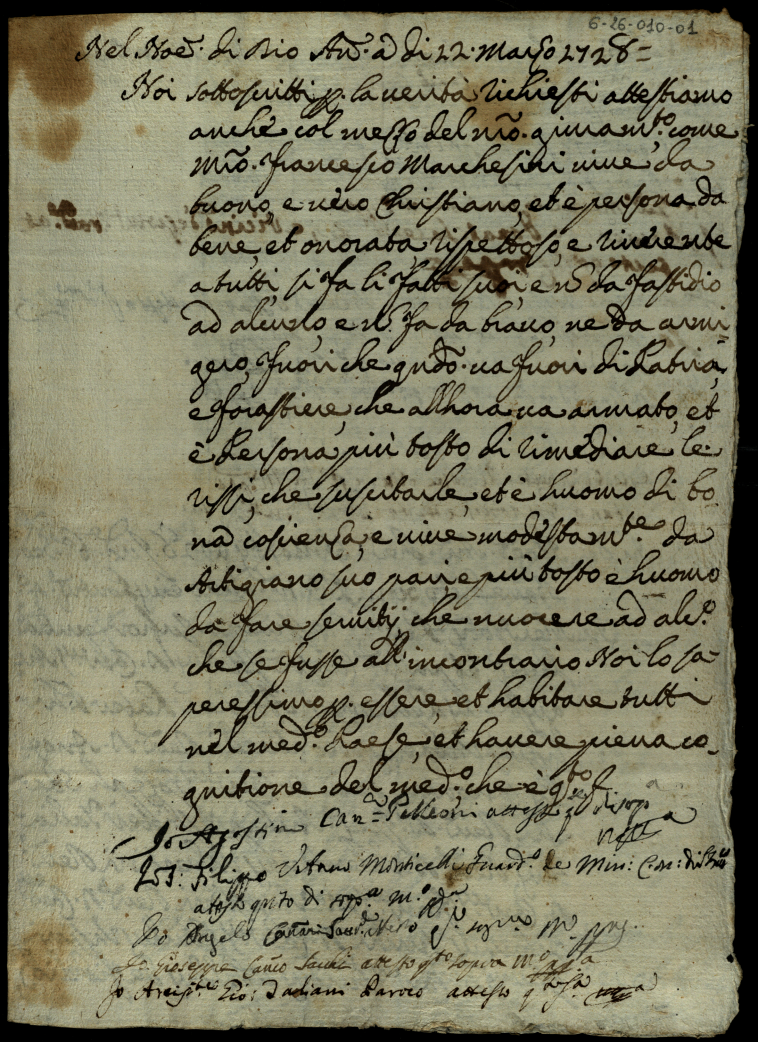 6-26-010-01
Nel Noẽ. di Dio Am̃. à di 22. Marzo 1728=
Noi sottoscritti p. la verità richiesti attestiamo
anche col mezzo del nr̃o. giuram.to come
Mr̃o. Francesco Marchesini vive da
buono, e vero Christiano, et è persona da
bene, et onorata rispettoso, e riverente
a tutti, si fa li fatti suoi, e nõ da fastidio
ad alcuno, e nõ fa da bravo, ne da armi=
gero, fuori che qndõ. va fuori di Patria,
e forastiere, che allhora va armato, et
è Persona più tosto di rimediare le
rissi, che suscitarle, et è huomo di bo
na cosienza, e vive modestam.te da
Artigiano suo pari, e più tosto è huomo
da fare servitij che nuocere ad alc.o
che se fusse all'incontrario Noi lo sa=
peressimo p. essere, et habitare tutti
nel med.o Paese, et havere piena co=
gnitione del med.o che è q.to
Io Agostin Can.co Pelleoni attesto q.to di sop.a
Filippo Monticelli Guard.o de Min: Con:
attesto quto di sop.a m.o p.a
Io Angelo
Io Gioseppe Can.co Sacchi attesto q.to sopra m.o pp.a
Io Arcip.te Gio: Daliani Paroco attesto q.to sop.a